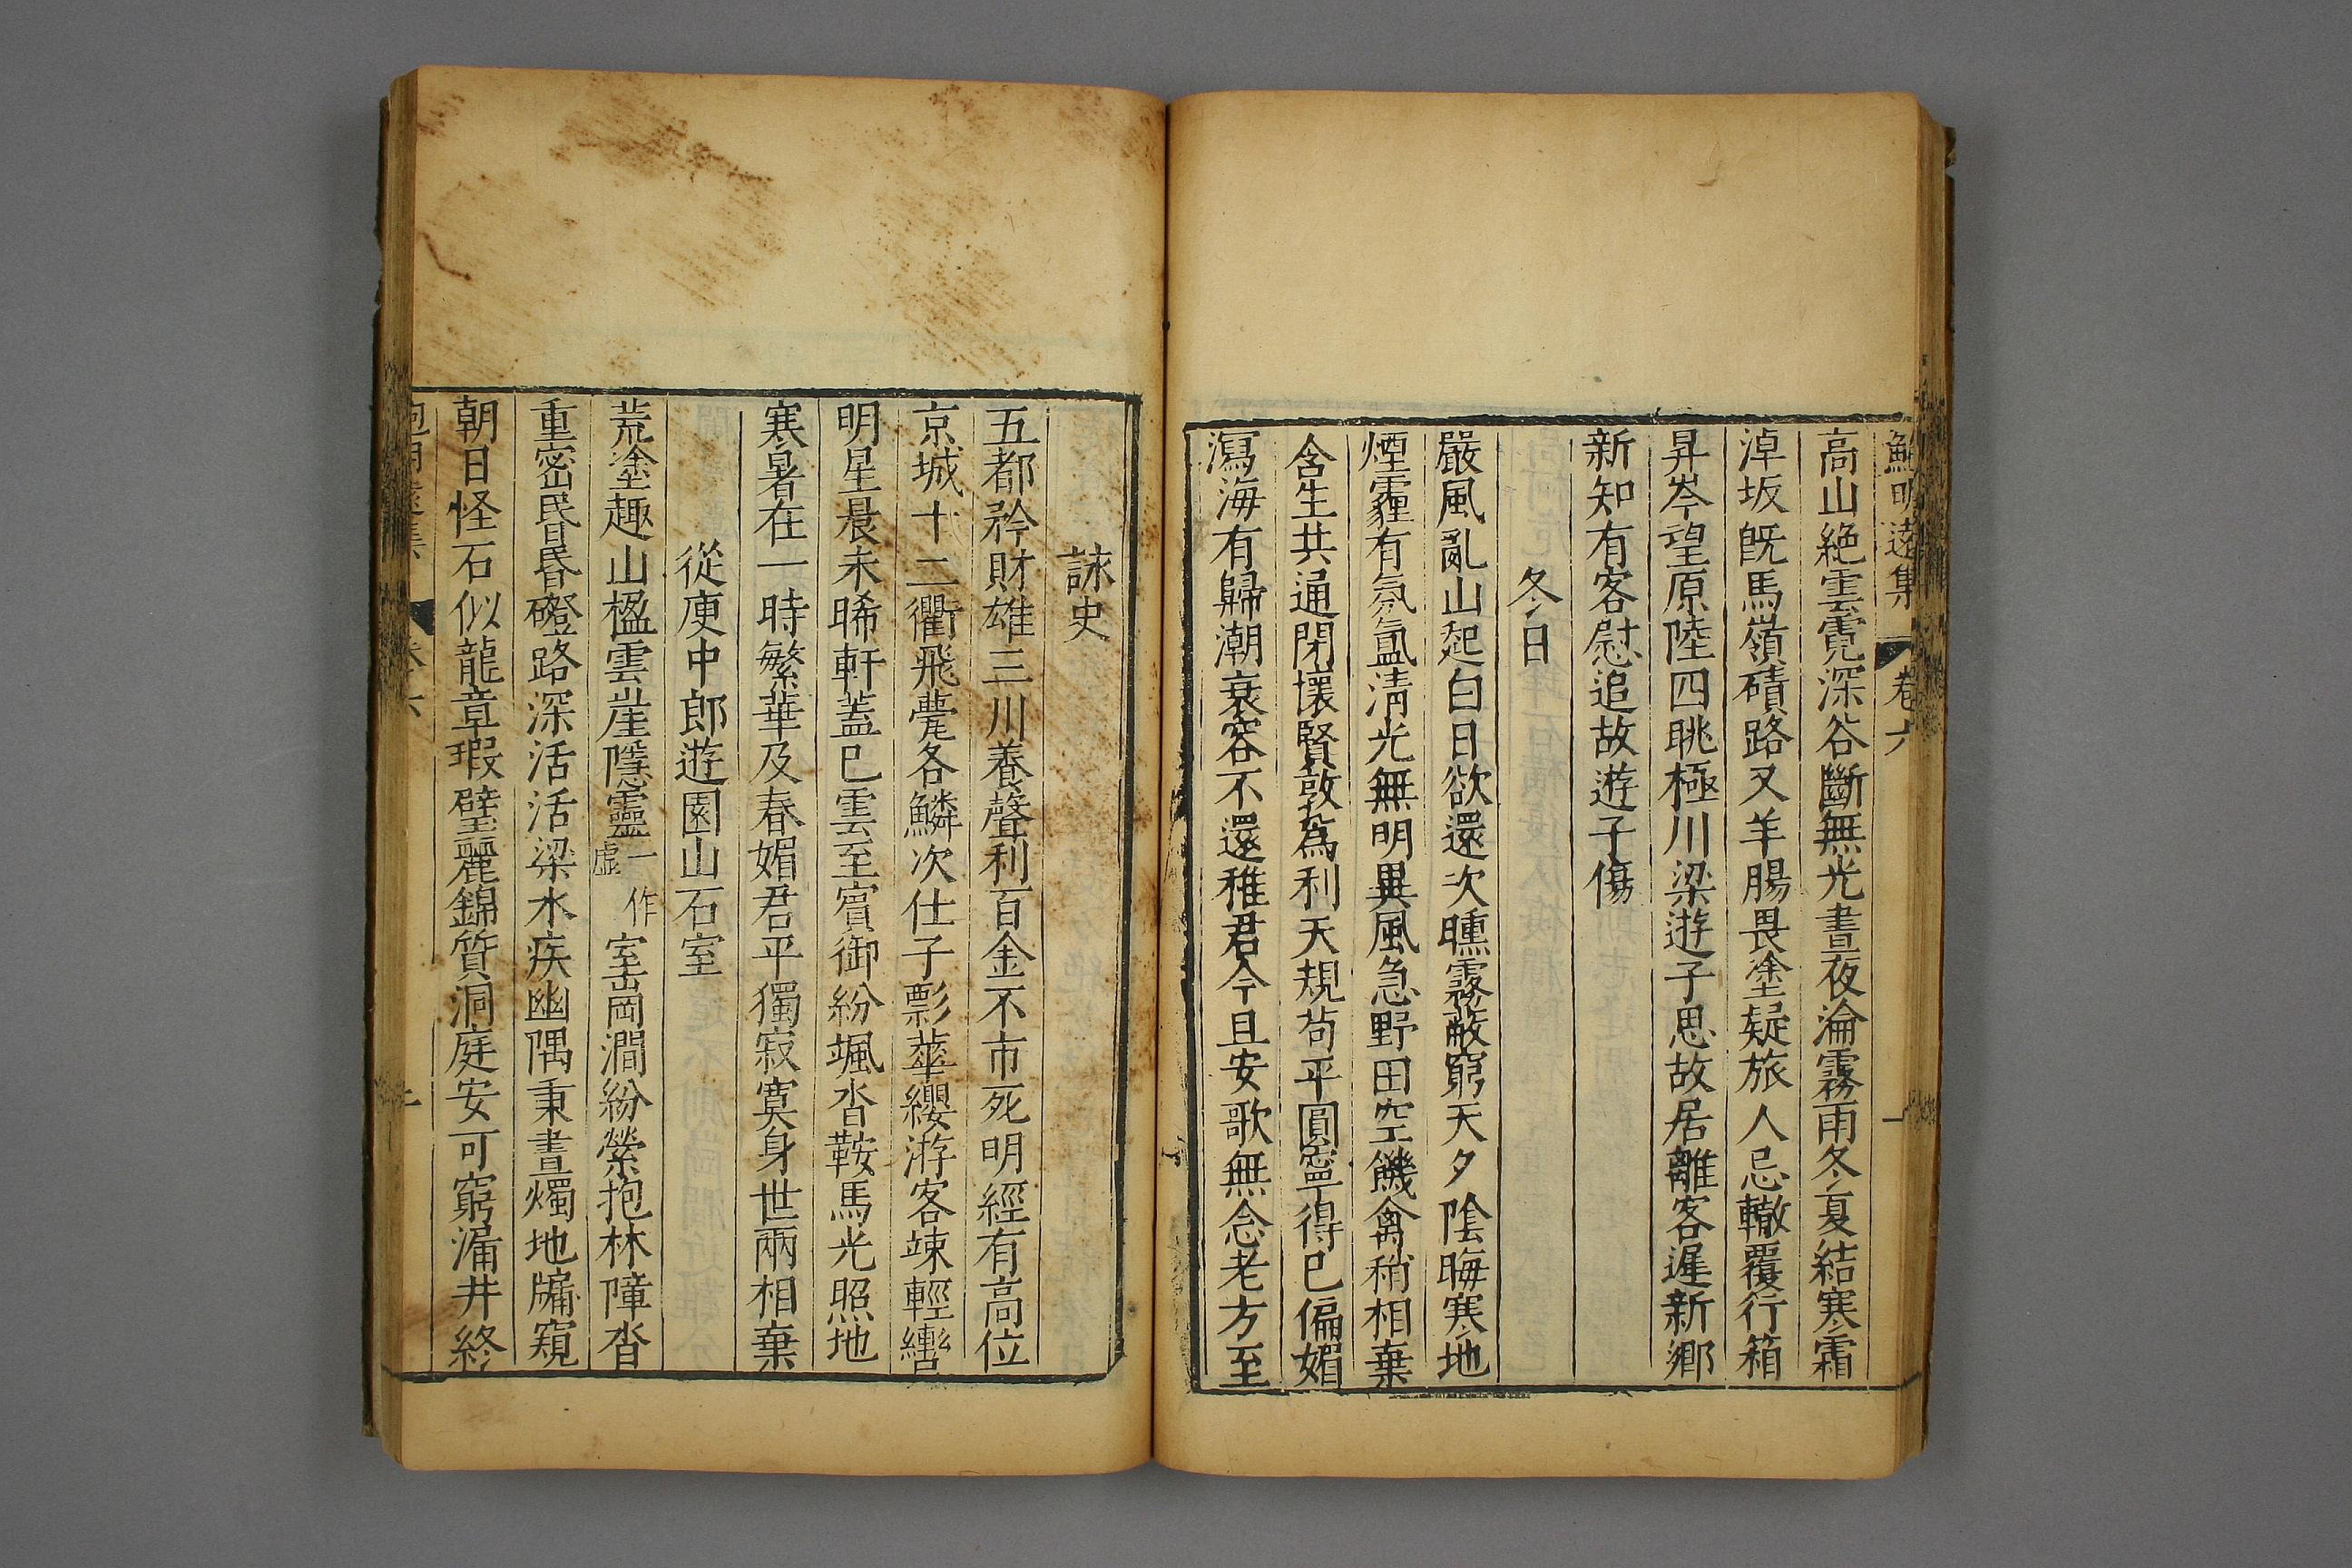 鮑明遠集 卷六 一
高山絶雲霓深谷斷無光晝夜淪霧雨冬夏結寒霜
淖坂旣馬嶺磧路又羊腸畏塗疑旅人忌轍覆行箱
昇岑望原陸四眺極川梁遊子思故居離客遲新鄉
新知有客慰追故遊子傷
冬日
嚴風亂山起白日欲還次曛霧蔽窮天夕陰晦寒地
煙霾有氛氳清光無明異風急野田空饑禽稍相棄
含生共通閉懷賢敦爲利天規苟平圓寧得巳偏媚
瀉海有歸潮衰容不還稚君今且安歌無念老方至
詠史
五都矜財雄三川養聲利百金不市死明經有高位
京城十二衢飛甍各鱗次仕子彯華纓游客竦輕轡
明星晨未晞軒蓋巳雲至賓御紛颯沓鞍馬光照地
寒暑在一時繁華及春媚君平獨寂寞身世兩相棄
從庾中郎遊園山石室
荒塗趣山楹雲崖隱靈一作虛室岡澗紛縈抱林障沓
重密昏昏磴路深活活梁水疾幽隅秉晝燭地牖窺
朝日怪石似龍章瑕璧麗錦質洞庭安可窮漏井終